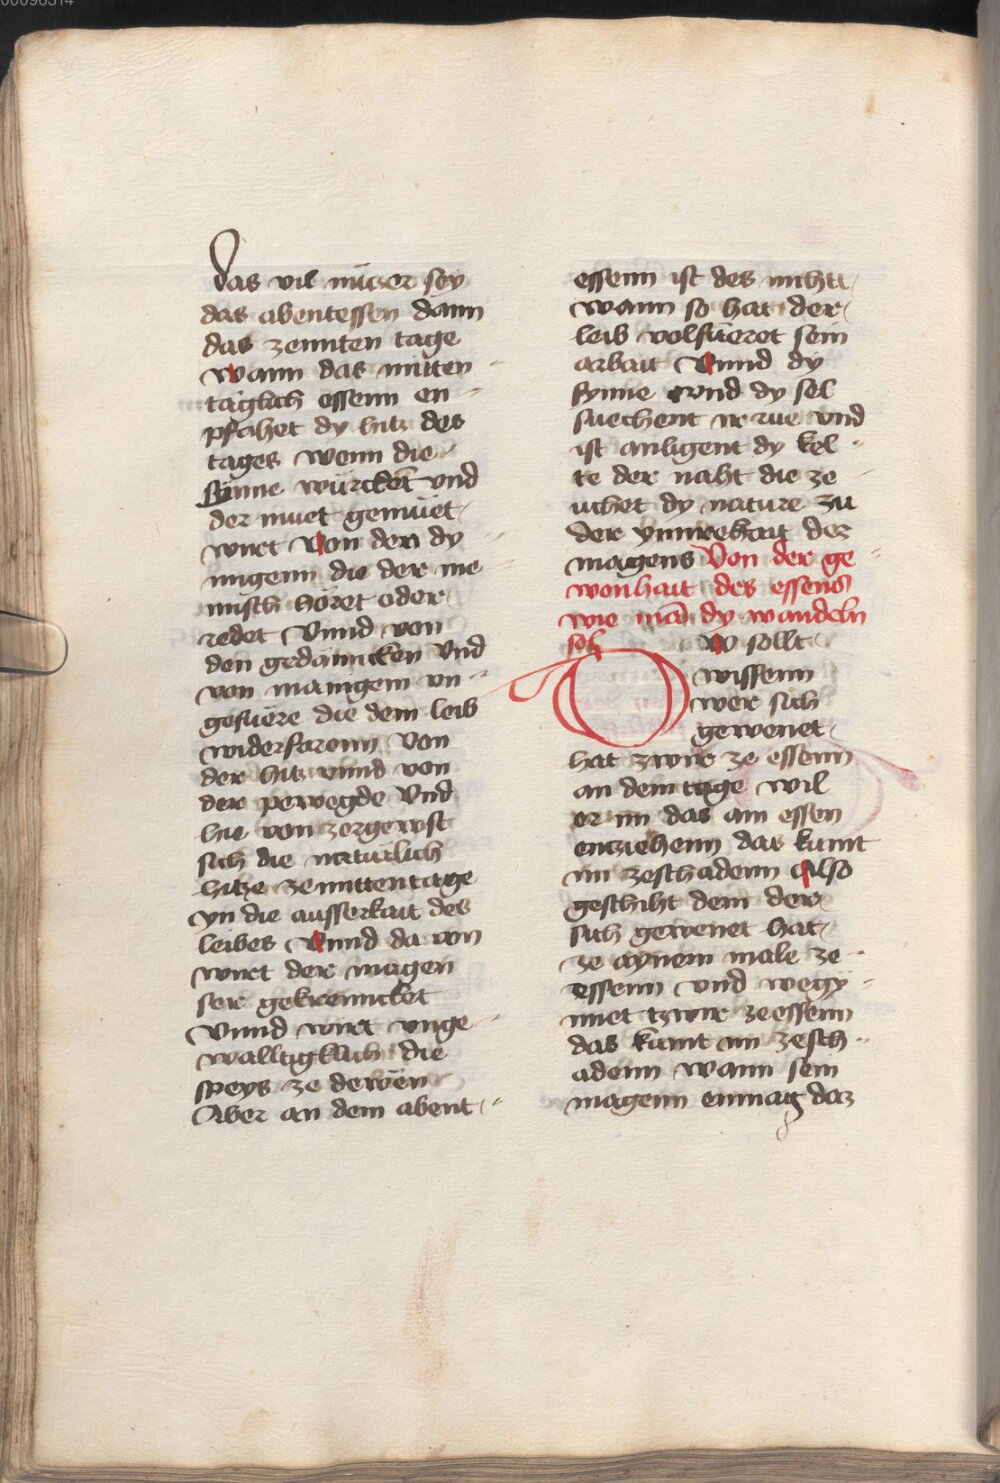 00096314
das vil nüczer sey
das abentessen dann
das zennten tage
wann das mitten
täglich essenn en
pfahet dy hitz des
tages wenn die
synne würcken vnd
der muet gemüet
wirt von den dy
nngenn die der me
nnsch höret oder
redet Vnnd von
den gedanncken Vnd
von manigem vn
gefüere die dem leib
widerfarenn Von
der hitz vnnd von
der pewegde Vnd
hie von zergewst
sich die natürlich
hitze ze mittentage
yn die ausserkait des
leibes Vnnd da von
wirt der magen
ser gekrenncket
Vnnd wirt vnge
walltigklich die
speys ze dewen
Aber an dem abent
essenn ist des nichtt
wann so hat der
leib volfüeret sein
arbait Vnnd dy
synne vnd dy sel
suechent ir rue vnd
ist anligent dy kel
te der naht die ze
uchet dy nature zu
der ynnrehait dez
magens Von der ge
wonhait des essens
wie man dy wandeln
sol
Dw sollt
wissenn
wer sich
gewenet
hat zwir ze essenn
an dem tage wil
er im das am essen
enziehenn das kumt
im zeschadenn Also
geschiht dem der
sich gewenet hat
ze aynem male ze
essenn vnd wegy
nnet tzwir ze essenn
das kumt im zesch
adenn wann sein
magenn enmag daz